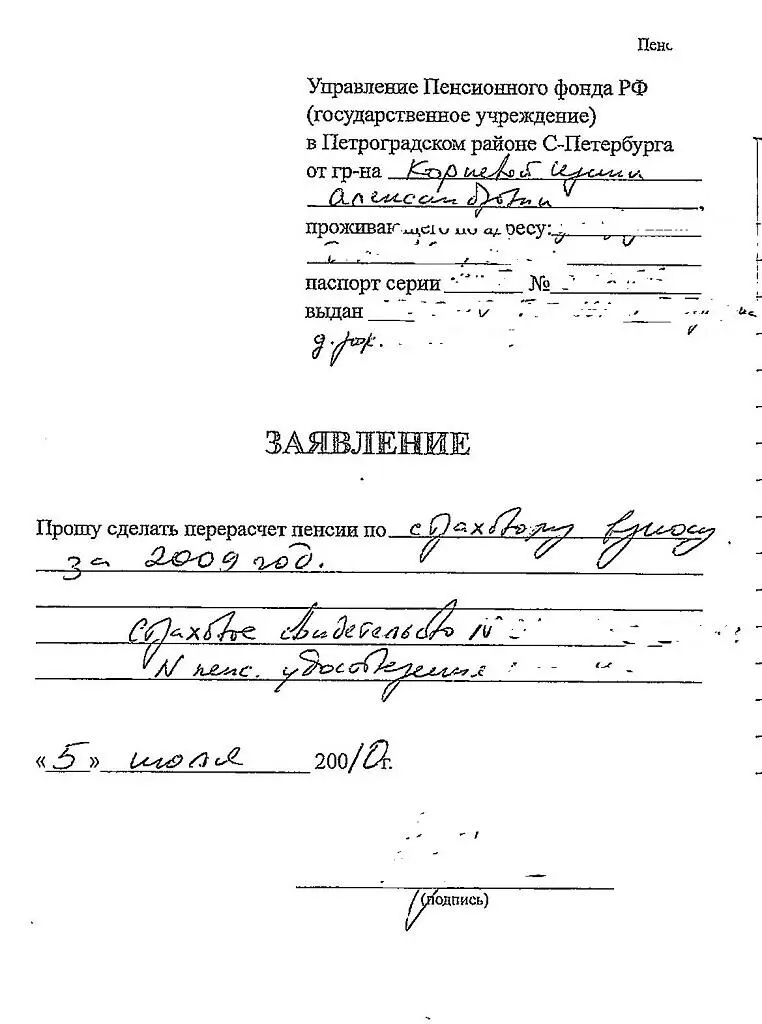 Пенс
Управление Пенсионного фонда РФ
(государственное учреждение)
в Петроградском районе С-Петербурга
от гр-на Корневой Ирины
Александровны,
проживающего по адресу:
паспорт серии №
выдан
д. рож.
ЗАЯВЛЕНИЕ
Прошу сделать перерасчет пенсии по страховому взносу
за 2009 год.
Страховое свидетельство N
N пенс. удостоверения
«5» июля 20010г.
(подпись)